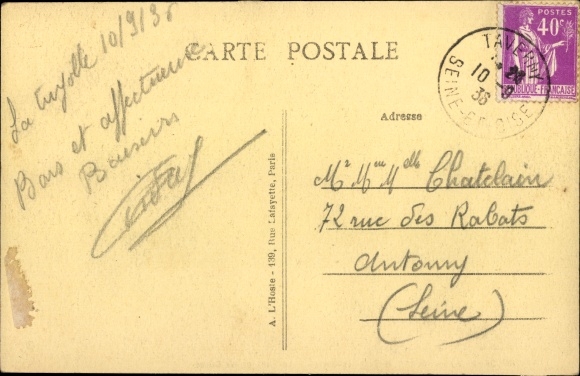 CARTE POSTALE
La tuyolle 10/9/36
Bons et affectueux
Baisers
Adresse
Mr Mme Mlle Chatelain
72 rue des Rabats
Antony
(Seine)
A. L'Hoste - 139, Rue Lafayette, Paris
POSTES
40c
TAVERNY
10-9
36
SEINE-ET-OISE